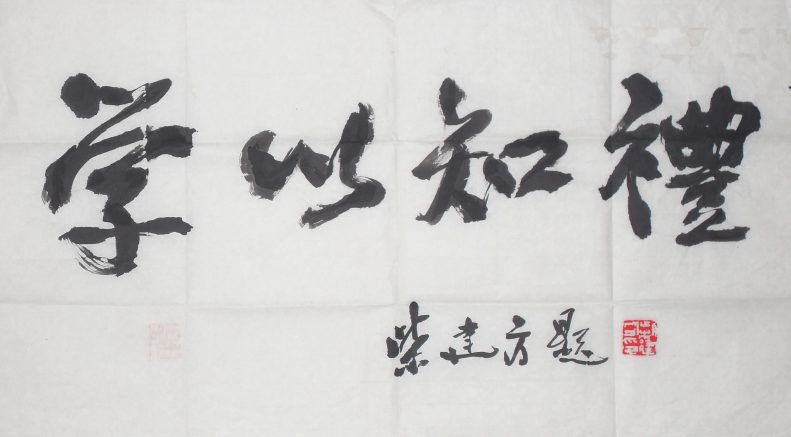 学以知禮
柴建方题